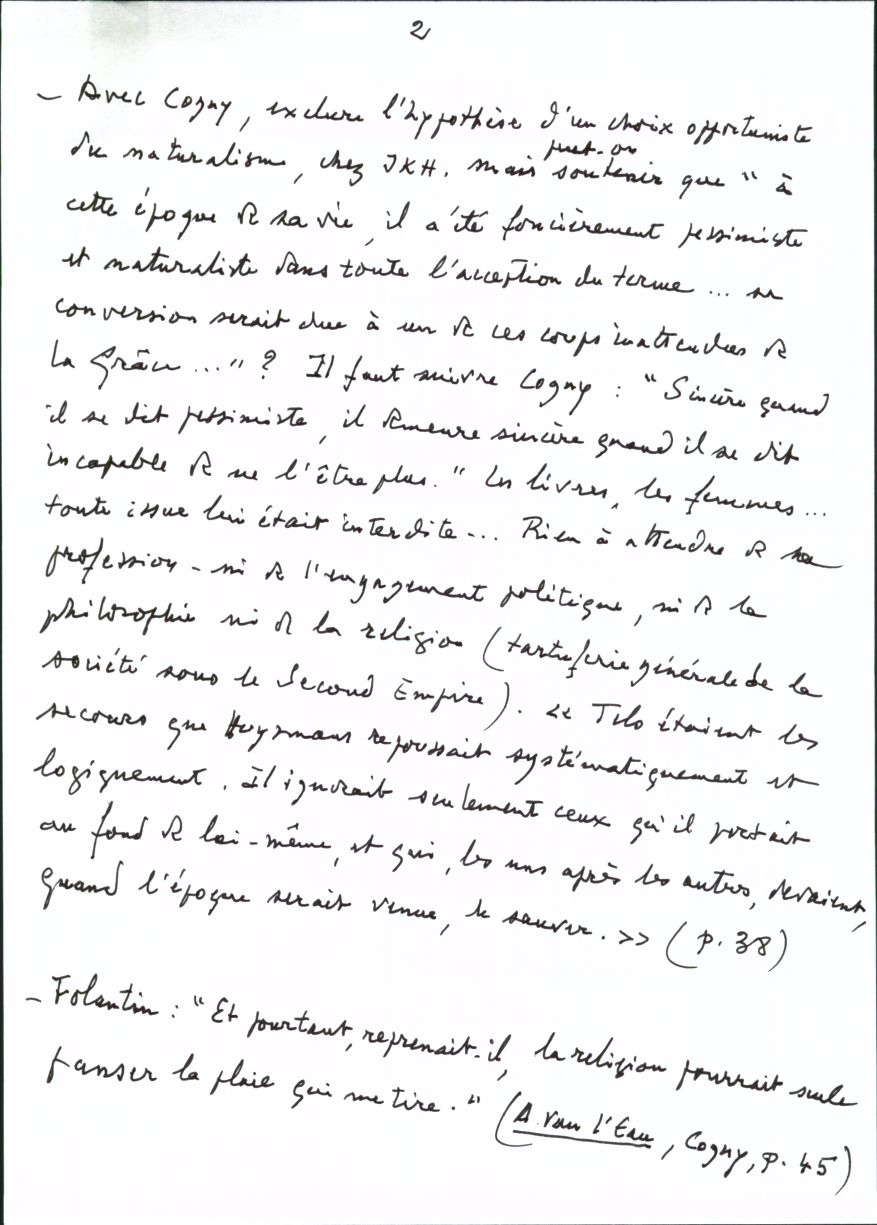 2
- Avec Cogny, exclure l'hypothèse d'un choix opportuniste
du naturalisme, chez JKH. mais peut-on soutenir que " à
cette époque de sa vie, il a été foncièrement pessimiste
et naturaliste dans toute l'acception du terme ... sa
conversion serait due à un de ces coups inattendus de
la Grâce ..." ? Il faut suivre Cogny : " Sincère quand
il se dit pessimiste, il demeure sincère quand il se dit
incapable de ne l'être plus. " Les livres, les femmes ...
toute issue lui était interdite ... Rien à attendre de sa
profession - ni de l'engagement politique, ni de la
philosophie ni de la religion (tartuferie générale de la
société sous le Second Empire). << Tels étaient les
secours que Huysmans repoussait systématiquement et
logiquement. Il ignorait seulement ceux qu'il portait
au fond de lui-même, et qui, les uns après les autres, devaient,
quand l'époque serait venue, le sauver. >> (p. 38)
- Folantin : " Et pourtant, reprenait-il, la religion pourrait seule
panser la plaie qui me tire. " (A vau l'Eau, Cogny, p. 45)